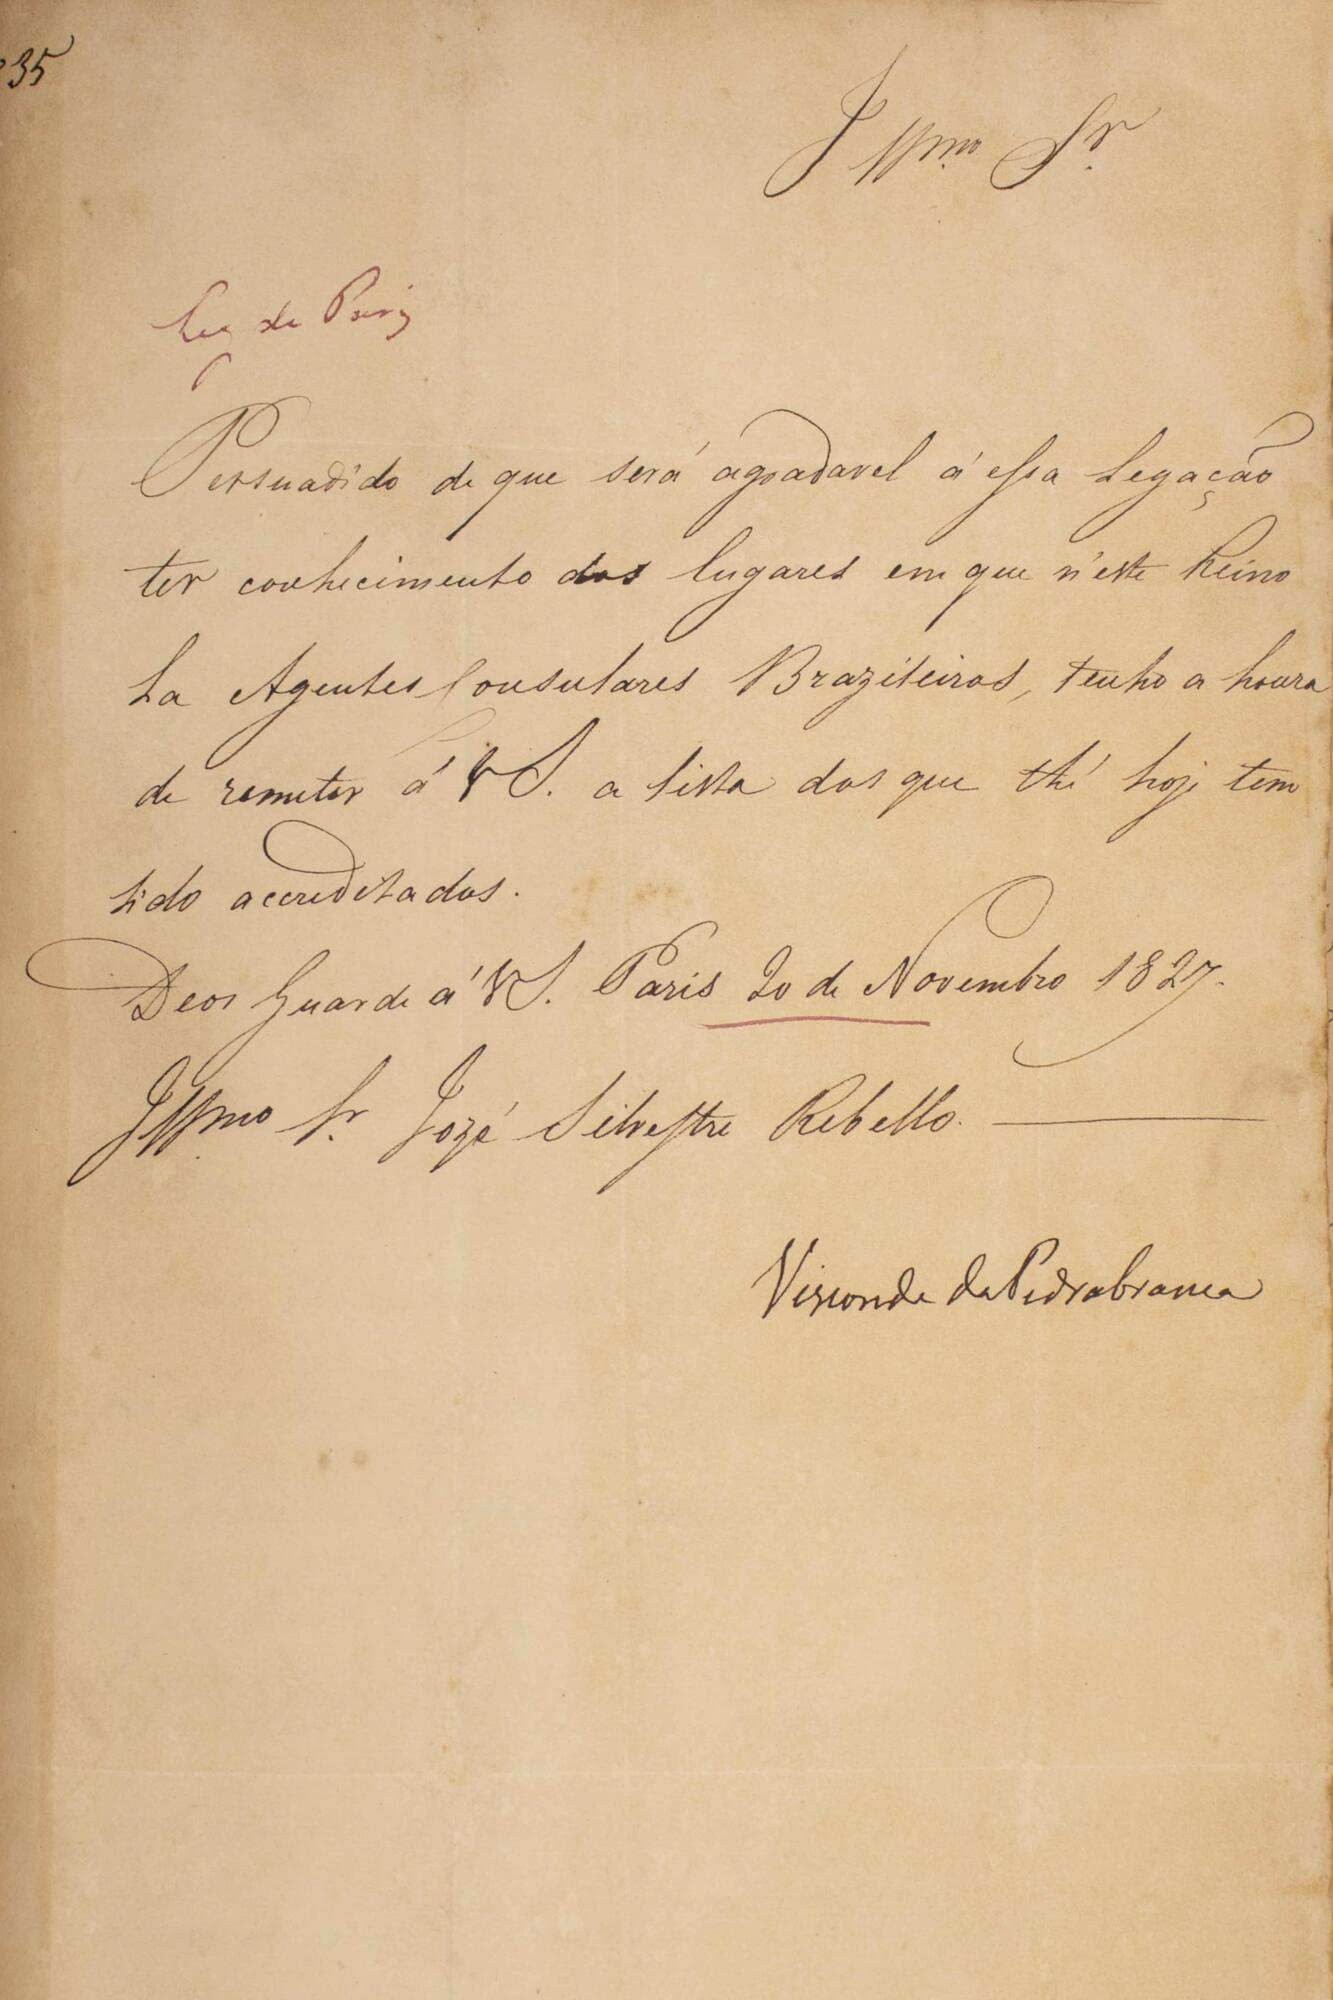 35
Illmo Sr.
Leg de Pariz
Persuadido de que será agradavel á essa Legação
ter conhecimento dos lugares em que n'este Reino
ha Agentes Consulares Brazileiros, tenho a honra
de remeter á VS. a lista dos que thé hoje tem
sido accreditados.
Deos Guarde á VS. Paris 20 de Novembro 1827.
Illmo Sr. Jozé Silvestre Rebello.
Visconde da Pedrabranca